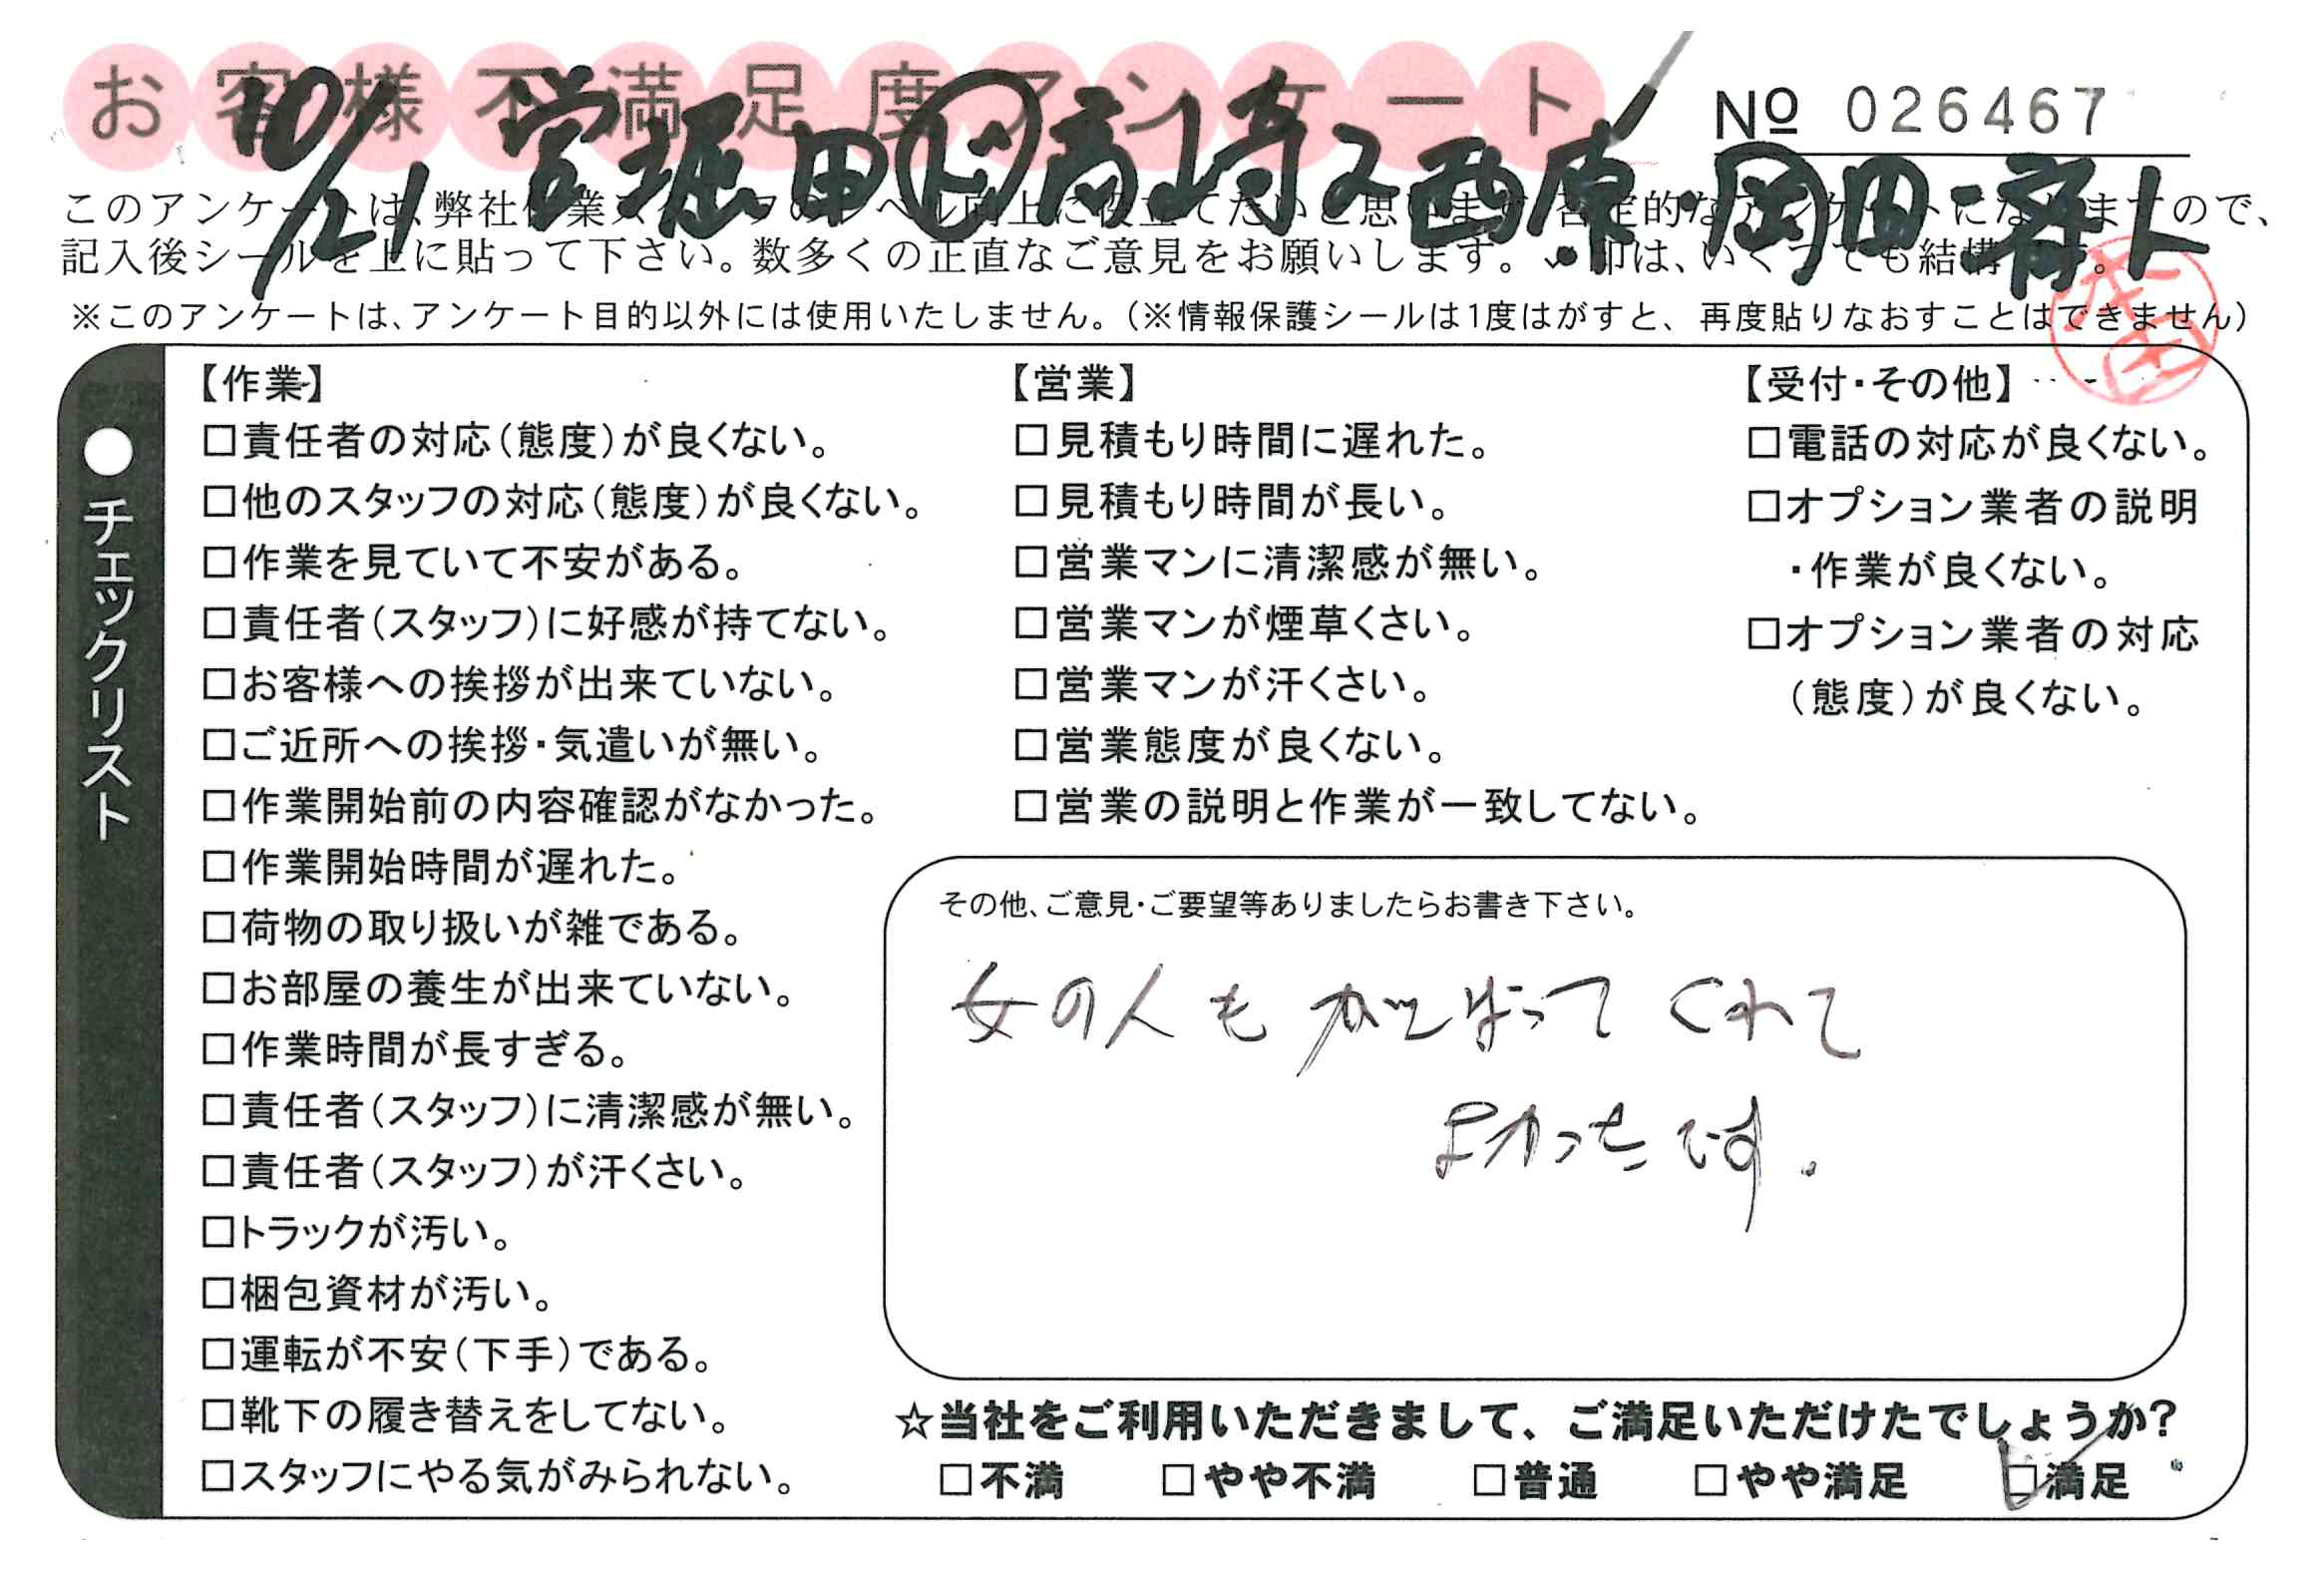 お客様不満足度アンケート
№ 026467
10/21 営堀田 ド高崎 又西原・岡田・
このアンケートは、弊社作業スタッフのレベル向上に役立てたいと思います。否定的なアンケートになりますので、
記入後シールを上に貼って下さい。数多くの正直なご意見をお願いします。✓印は、いくつでも結構です。
※このアンケートは、アンケート目的以外には使用いたしません。(※情報保護シールは1度はがすと、再度貼りなおすことはできません)
●チェックリスト
【作業】
□責任者の対応(態度)が良くない。
□他のスタッフの対応(態度)が良くない。
□作業を見ていて不安がある。
□責任者(スタッフ)に好感が持てない。
□お客様への挨拶が出来ていない。
□ご近所への挨拶・気遣いが無い。
□作業開始前の内容確認がなかった。
□作業開始時間が遅れた。
□荷物の取り扱いが雑である。
□お部屋の養生が出来ていない。
□作業時間が長すぎる。
□責任者(スタッフ)に清潔感が無い。
□責任者(スタッフ)が汗くさい。
□トラックが汚い。
□梱包資材が汚い。
□運転が不安(下手)である。
□靴下の履き替えをしてない。
□スタッフにやる気がみられない。
【営業】
□見積もり時間に遅れた。
□見積もり時間が長い。
□営業マンに清潔感が無い。
□営業マンが煙草くさい。
□営業マンが汗くさい。
□営業態度が良くない。
□営業の説明と作業が一致してない。
【受付・その他】
□電話の対応が良くない。
□オプション業者の説明
・作業が良くない。
□オプション業者の対応
(態度)が良くない。
その他、ご意見・ご要望等ありましたらお書き下さい。
女の人も がんばって くれて
よかったです.
☆当社をご利用いただきまして、ご満足いただけたでしょうか?
□不満 □やや不満 □普通 □やや満足 ☑満足